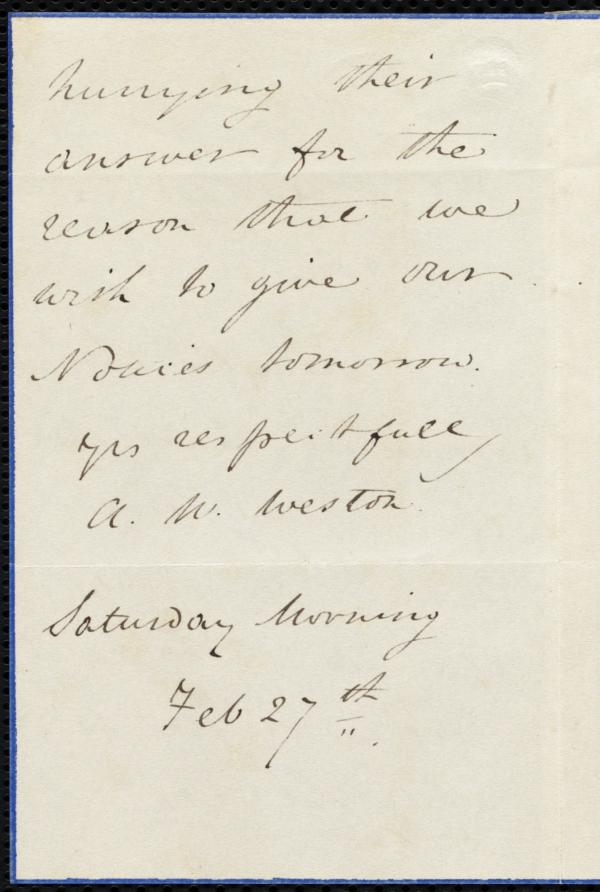 hurrying their
answer for the
reason that we
wish to give our
Notices tomorrow.
yrs respectfully
A. W. Weston.
Saturday Morning
Feb 27th.